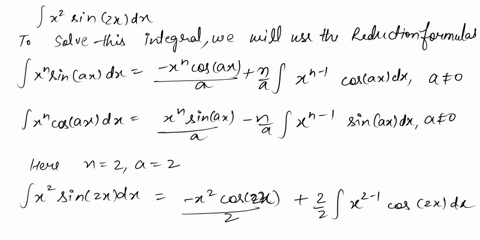 ∫x² sin(2x)dx
To solve this integral, we will use the Reduction formulas
∫xⁿsin(ax)dx = -xⁿcos(ax)/a + n/a ∫ xⁿ⁻¹ cos(ax)dx, a≠0
∫xⁿcos(ax)dx = xⁿsin(ax)/a - n/a ∫xⁿ⁻¹ sin(ax)dx, a≠0
Here n=2, a=2
∫x² sin(2x)dx = -x² cos(2x)/2 + 2/2 ∫x²⁻¹ cos(2x)dx